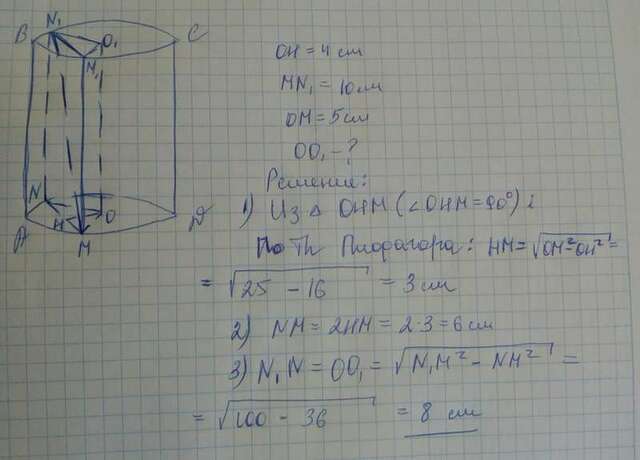 N₁
B O₁ C
N₁
N O
A H D
M
OH = 4 см
MN₁ = 10 см
OM = 5 см
OO₁ - ?
Решение:
1) Из △ OHM (∠OHM = 90°) :
По Th Пифагора: HM = √OM² - OH² =
= √25 - 16 = 3 см
2) NM = 2HM = 2·3 = 6 см
3) N₁N = OO₁ = √N₁M² - NM² =
= √100 - 36 = 8 см